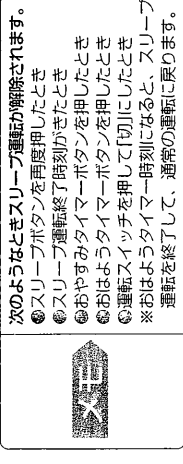 メモ
次のようなときスリープ運転が解除されます。
●スリープボタンを再度押したとき
●スリープ運転終了時刻がきたとき
●おやすみタイマーボタンを押したとき
●おはようタイマーボタンを押したとき
●運転スイッチを押して「切」にしたとき
※おはようタイマー時刻になると、スリープ
運転を終了して、通常の運転に戻ります。